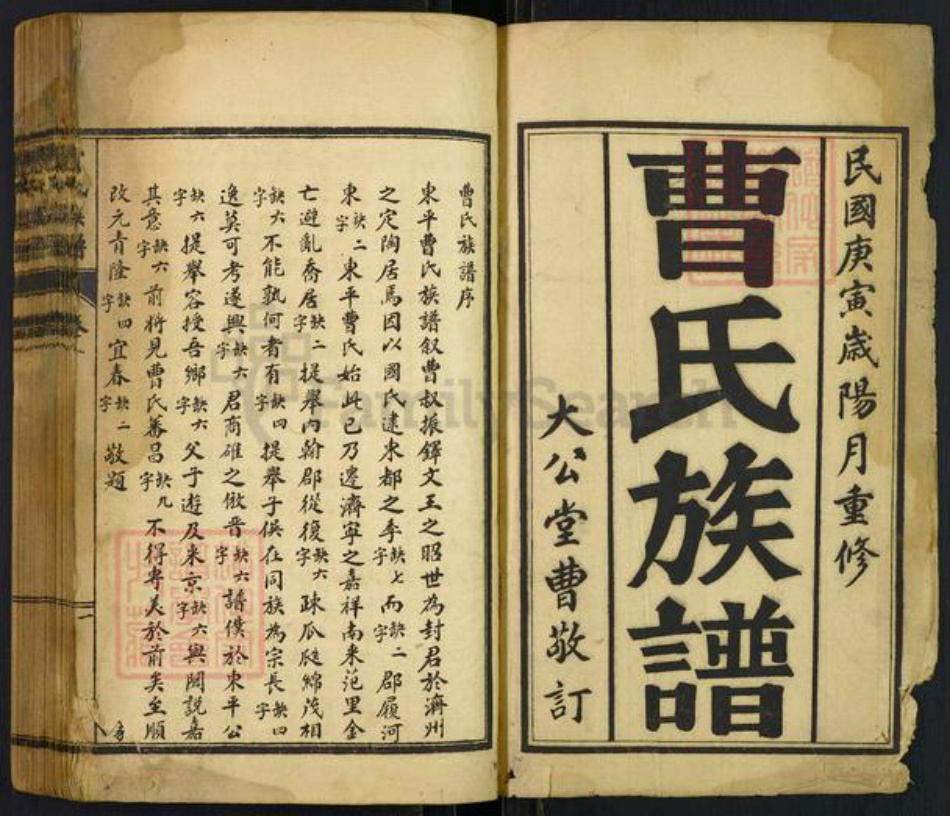 民國庚寅歲陽月重修
曹氏族譜
大公堂曹敬訂
曹氏族譜序
東平曹氏族譜叙曹叔振鐸文王之昭世為封君於濟州
之定陶居焉因以國氏逮東都之季缺七字而缺二字郡履河
東缺二字東平曹氏始此已乃遷濟寧之嘉祥南來范里金
亡避亂喬居缺二字提舉内翰郡從復缺六字疎瓜瓞綿茂相
缺六字不能孰何者有缺四字提舉子俣在同族為宗長缺四字
逸莫可考遂興缺六字君商確之倣晋缺六字譜僕於東平公
缺六字提舉容授吾鄉缺六字父子遊及来京缺六字與聞説嘉
其意缺六字前将見曹氏蕃昌缺九字不得専美於前矣至順
改元青隆缺四字宜春缺二字敬題
FamilySearch